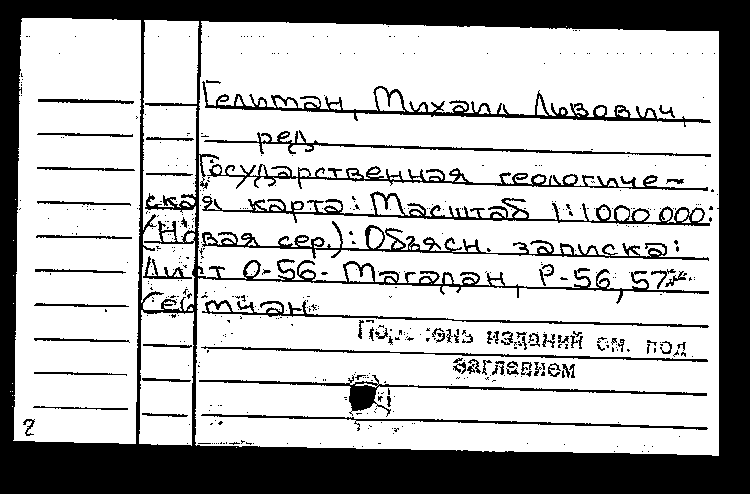 Гельман, Михаил Львович,
ред.
Государственная геологиче-
ская карта: Масштаб 1:1000 000:
(Новая сер.): Объясн. записка:
Лист О-56- Магадан, Р-56,57-
Сеймчан
Перечень изданий см. под
заглавием
2